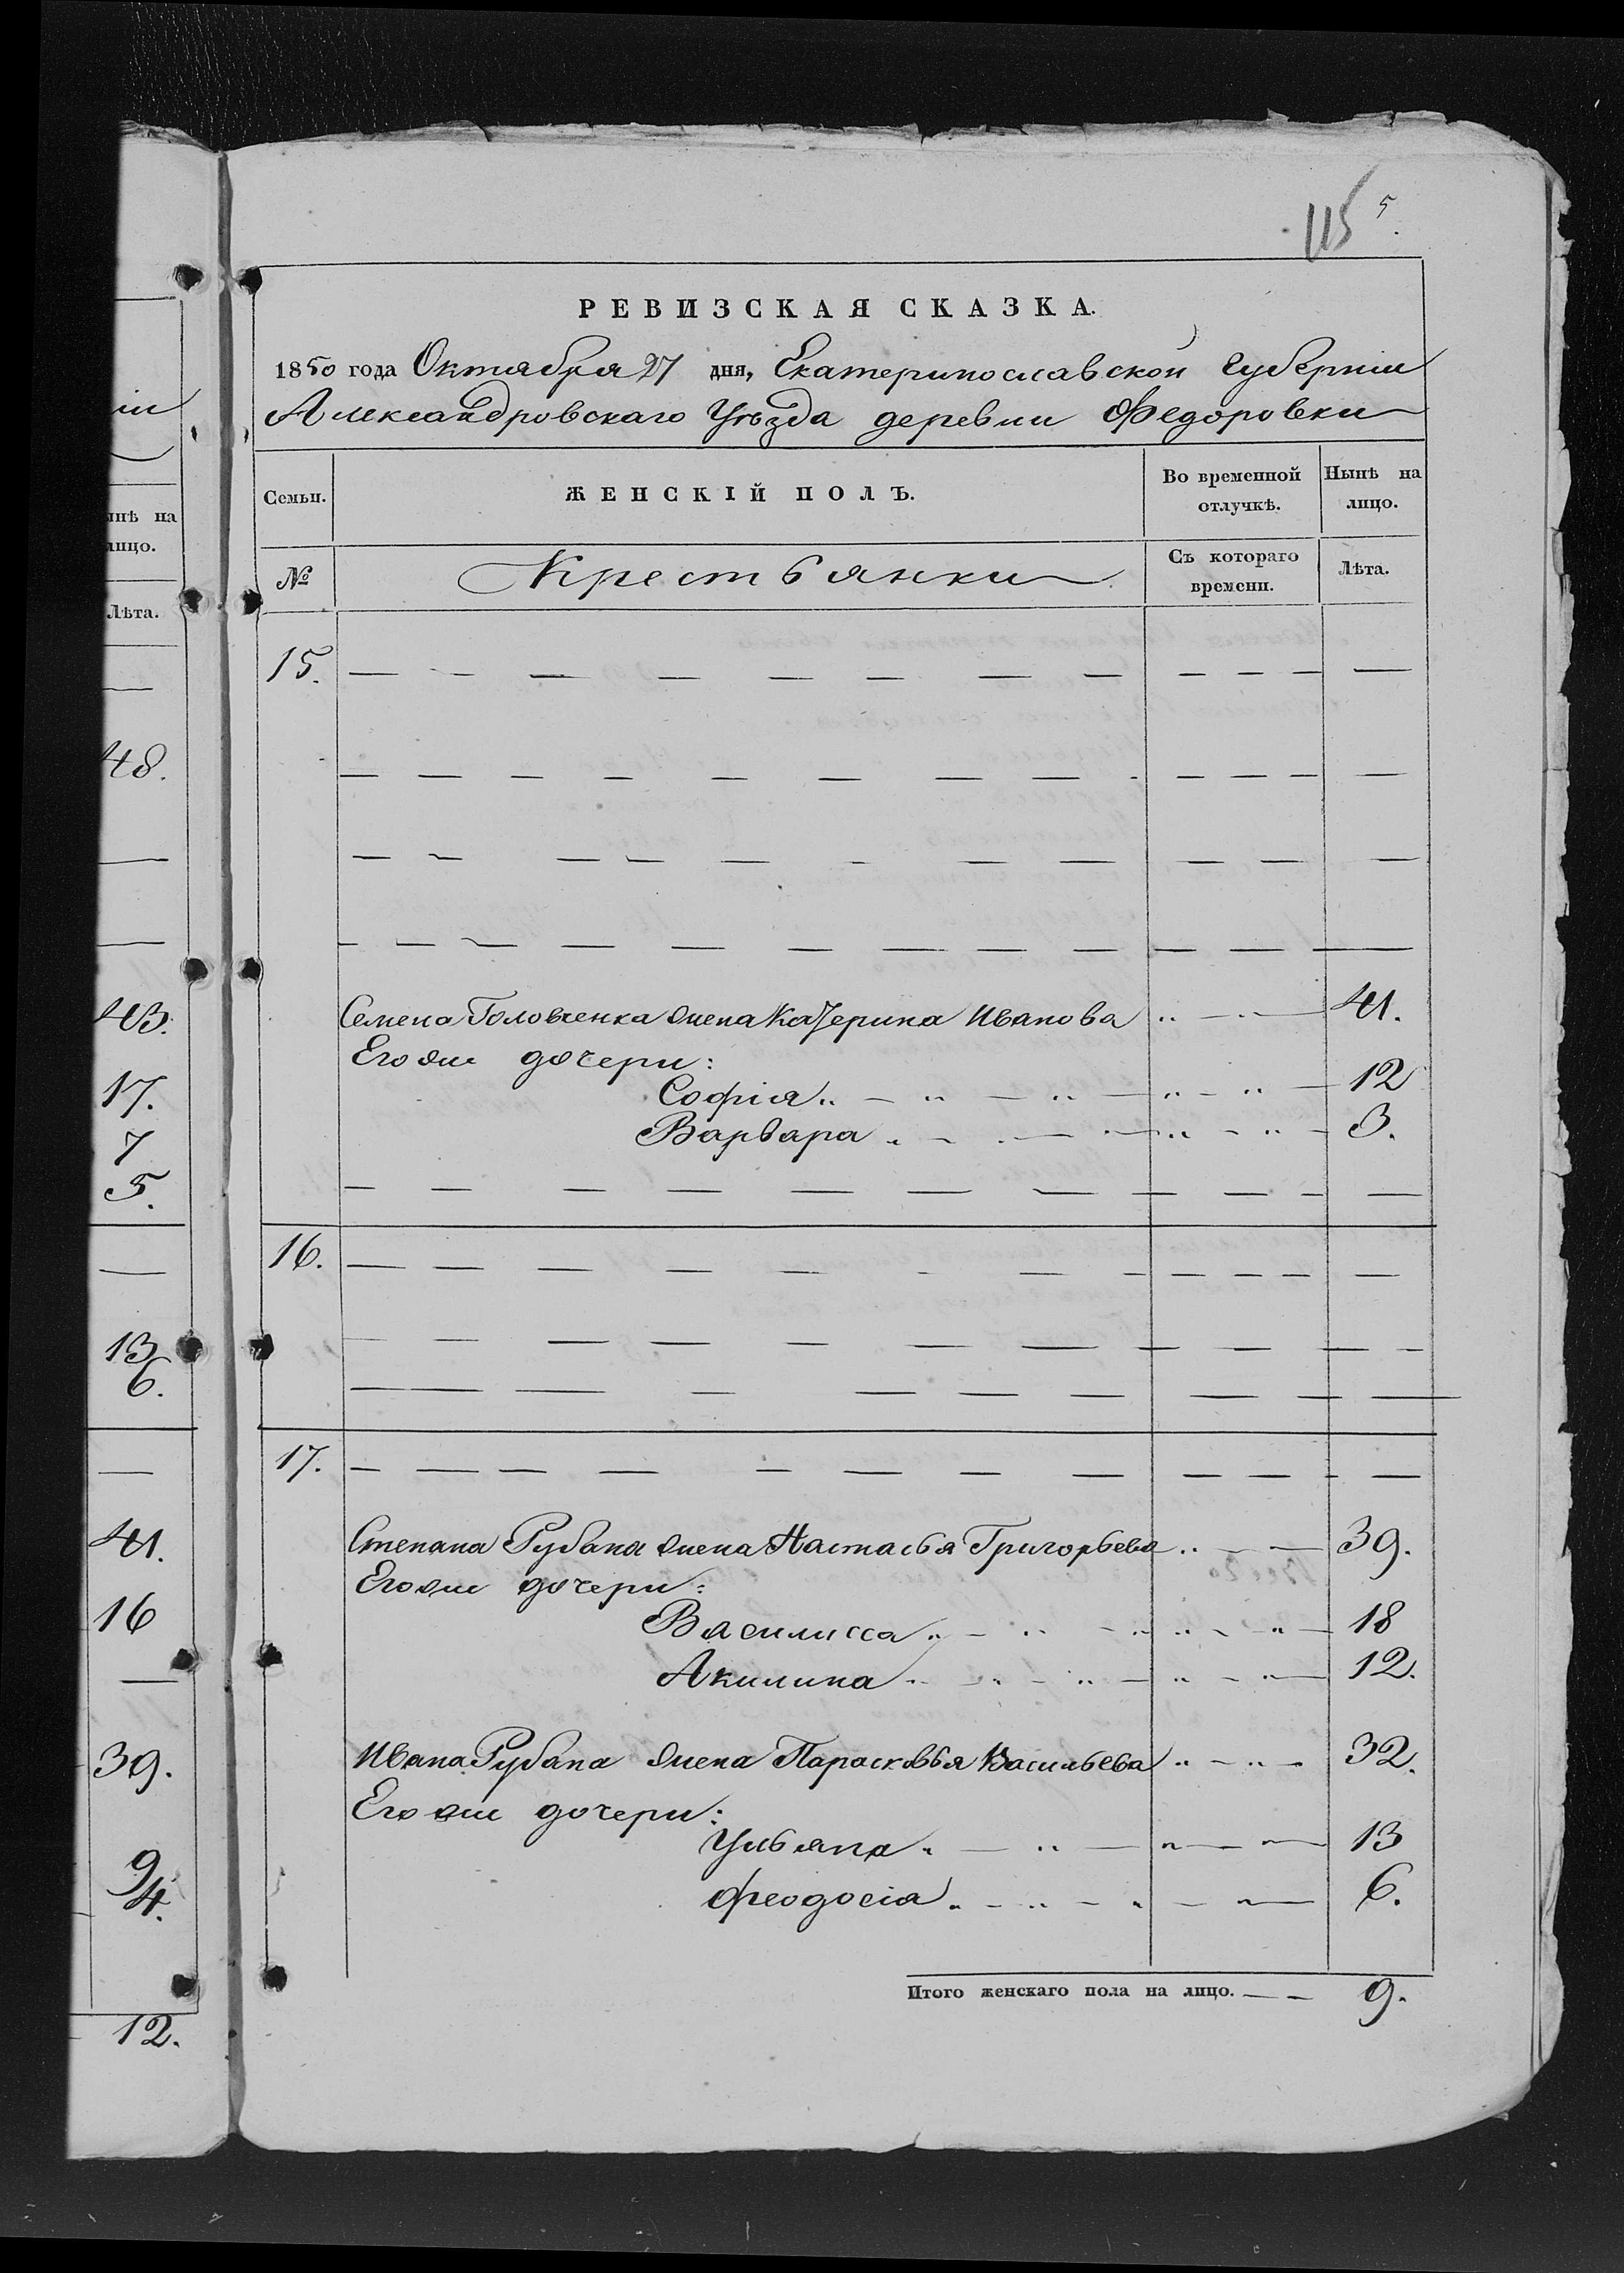 115 5.
РЕВИЗСКАЯ СКАЗКА.
1850 года Октября 27 дня, Екатеринославской Губерніи
Александровскаго Уѣзда деревни Федоровки
Семьи. ЖЕНСКІЙ ПОЛЪ. Во временной отлучкѣ. Нынѣ на лицо.
№ Крестьянки Съ котораго времени. Лѣта.
15.
Семена Головченка жена Катерина Иванова 41.
Его же дочери:
Софія 12
Варвара 3.
16.
17.
Степана Рубана жена Настасья Григорьева 39.
Его же дочери:
Василисса 18
Акилина 12.
Ивана Рубана жена Парасковья Васильева 32.
Его же дочери:
Ульяна 13
Феодосіа 6.
Итого женскаго пола на лицо. 9.
іи
нѣ на
лицо.
Лѣта.
48.
43.
17.
7
5.
13
6.
41.
16
39.
9
4.
12.